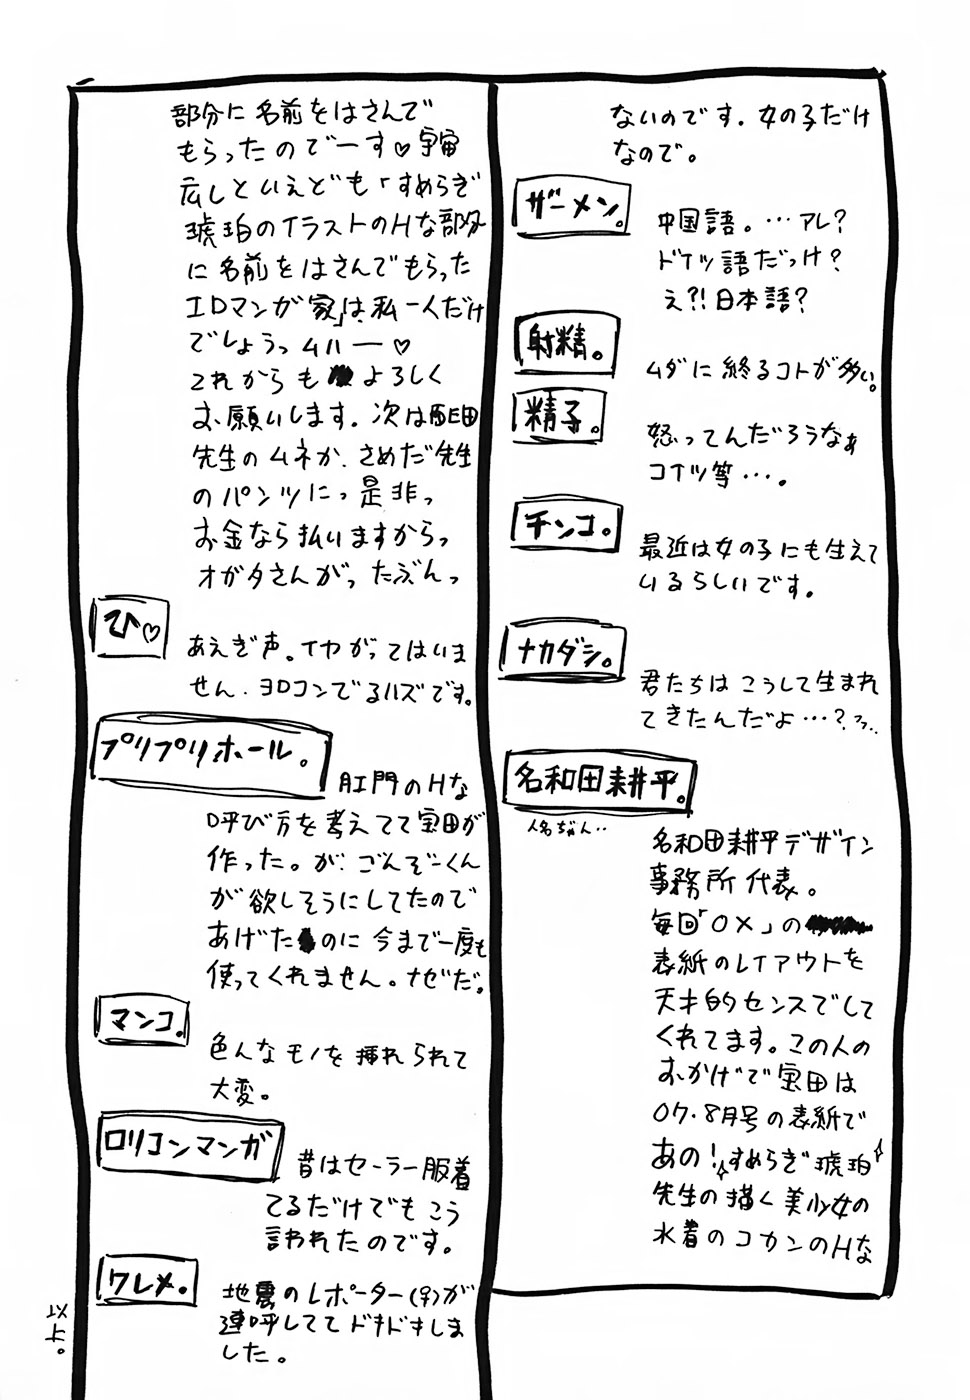 ないのです。女の子だけ
なので。
ザーメン。
中国語。…アレ?
ドイツ語だっけ?
え?!日本語?
射精。
ムダに終るコトが多い。
精子。
怒ってんだろうなぁ
コイツ等…。
チンコ。
最近は女の子にも生えて
いるらしいです。
ナカダシ。
君たちはこうして生まれ
てきたんだよ…?フフ..
名和田耕平。
人名ぢゃん..
名和田耕平デザイン
事務所代表。
毎回「OX」の
表紙のレイアウトを
天才的センスでして
くれてます。この人の
おかげで宝田は
07.8月号の表紙で
あの!すめらぎ琥珀
先生の描く美少女の
水着のコカンのHな
部分に名前をはさんで
もらったのでーす♡宇宙
広しといえども「すめらぎ
琥珀のイラストのHな部分
に名前をはさんでもらった
エロマンガ家」は、私一人だけ
でしょうっムハー♡
これからもよろしく
お願いします。次は
先生のムネか、さめだ先生
のパンツにっ是非っ
お金なら払いますからっ
オガタさんがったぶんっ
ひ♡
あえぎ声。イヤがってはいま
せん。ヨロコンでるハズです。
プリプリホール。
肛門のHな
呼び方を考えてて宝田が
作った。が、ごんぞーくん
が欲しそうにしてたので
あげたのに今まで一度も
使ってくれません。ナゼだ。
マンコ。
色んなモノを挿れられて
大変。
ロリコンマンガ
昔はセーラー服着
てるだけでもこう
言われたのです。
ワレメ。
地震のレポーター(♀)が
連呼しててドキドキしま
した。